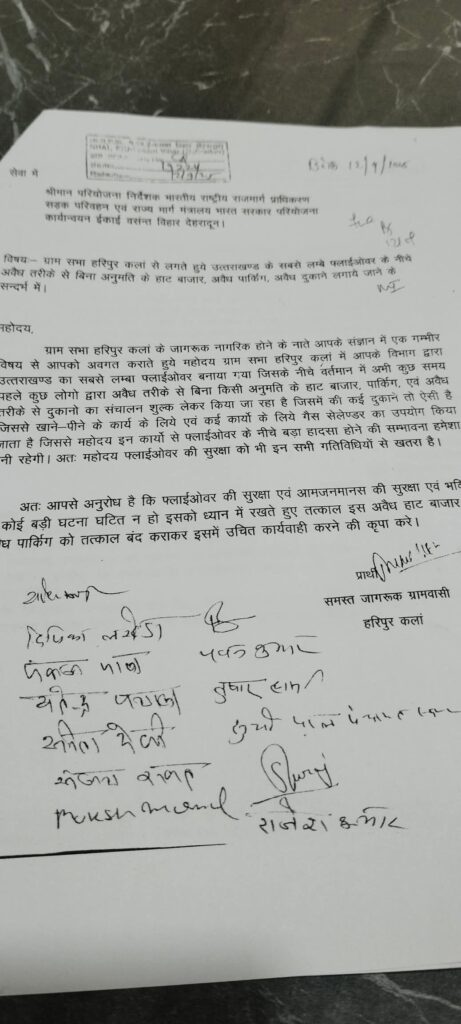 सेवा में
श्रीमान परियोजना निर्देशक भारतीय राष्ट्रीय राजमार्ग प्राधिकरण
सड़क परिवहन एवं राज्य मार्ग मंत्रालय भारत सरकार परियोजना
कार्यान्वयन ईकाई वसंत विहार देहरादून।
विषयः– ग्राम सभा हरिपुर कलां से लगते हुये उत्तराखण्ड के सबसे लम्बे फ्लाईओवर के नीचे
अवैध तरीके से बिना अनुमति के हाट बाजार, अवैध पार्किंग, अवैध दुकाने लगाये जाने के
सन्दर्भ में।
महोदय,
ग्राम सभा हरिपुर कलां के जागरूक नागरिक होने के नाते आपके संज्ञान में एक गम्भीर
विषय से आपको अवगत कराते हुये महोदय ग्राम सभा हरिपुर कलां में आपके विभाग द्वारा
उत्तराखण्ड का सबसे लम्बा फ्लाईओवर बनाया गया जिसके नीचे वर्तमान में अभी कुछ समय
पहले कुछ लोगो द्वारा अवैध तरीके से बिना किसी अनुमति के हाट बाजार, पार्किंग, एवं अवैध
तरीके से दुकानो का संचालन शुल्क लेकर किया जा रहा है जिसमें की कई दुकाने तो ऐसी है
जिससे खाने–पीने के कार्य के लिये एवं कई कार्यो के लिये गैस सेलेण्डर का उपयोग किया
जाता है जिससे महोदय इन कार्यो से फ्लाईओवर के नीचे बड़ा हादसा होने की सम्भावना हमेशा
नी रहेगी। अतः महोदय फ्लाईओवर की सुरक्षा को भी इन सभी गतिविधियों से खतरा है।
अतः आपसे अनुरोध है कि फ्लाईओवर की सुरक्षा एवं आमजनमानस की सुरक्षा एवं भवि
कोई बड़ी घटना घटित न हो इसको ध्यान में रखते हुए तत्काल इस अवैध हाट बाजार
ध पार्किंग को तत्काल बंद कराकर इसमें उचित कार्यवाही करने की कृपा करे।
प्रार्थी
समस्त जागरूक ग्रामवासी
हरिपुर कलां
दिपिका
पंकज
राजेश कुमार